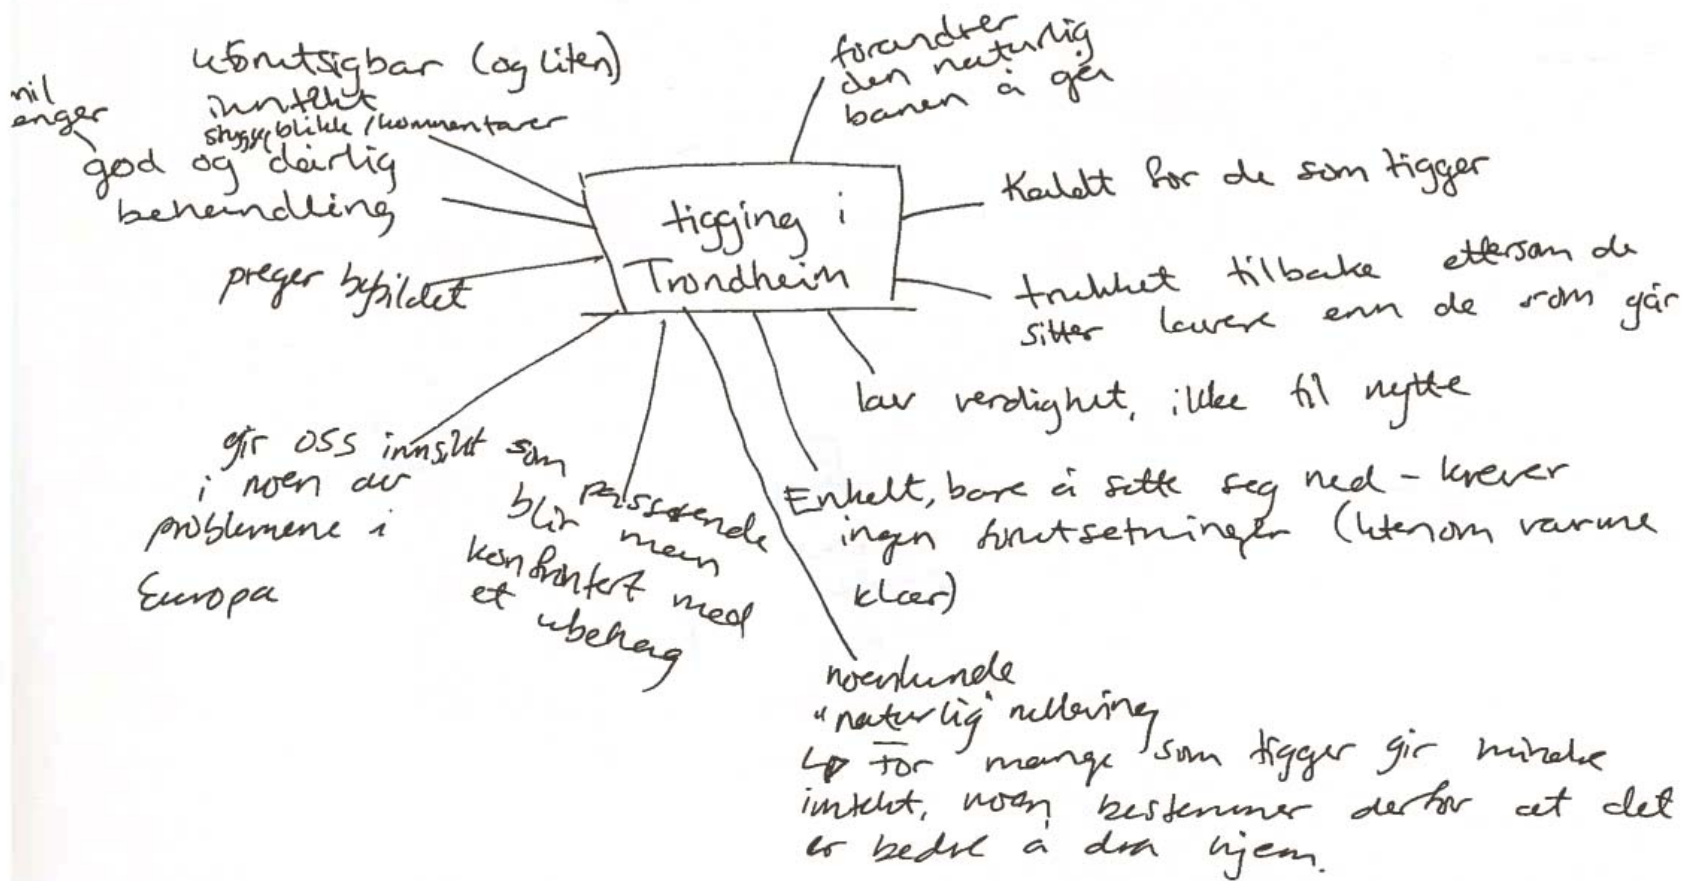 uforutsigbar (og liten)
inntekt
stygge blikk / kommentarer
smil
penger
god og dårlig
behandling
preger bybildet
gir oss innsikt
i noen av
problemene i
Europa
som
passerende
blir man
konfrontert med
et ubehag
tigging i
Trondheim
forandrer
den naturlig
banen å gå
Kaldt for de som tigger
trukket tilbake ettersom de
sitter lavere enn de som går
lav verdighet, ikke til nytte
Enkelt, bare å sette seg ned - krever
ingen forutsetninger (utenom varme
klær)
noenlunde
"naturlig"
↳ For mange som tigger gir mindre
inntekt, noen bestemmer derfor at det
er bedre å dra hjem.